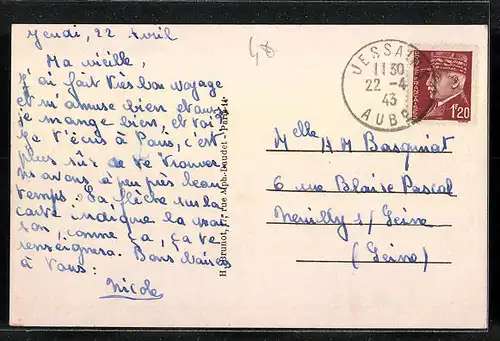 Jeudi, 22 Avril
Ma vieille,
J'ai fait très bon voyage
et m'amuse bien et aussi
je mange bien, et toi?
Je t'écris à Paris, c'est
plus sûr de te trouver.
ns avons à peu près beau
temps. La flèche sur la
carte indique la mai-
son, comme ça, ça te
renseignera. Bons baisers
à tous:
Nicole
JESSA
11 30
22 - 4
43
AUBE
1F20
Melle M Basquiat
6 rue Blaise Pascal
Neuilly s/ Seine
(Seine)